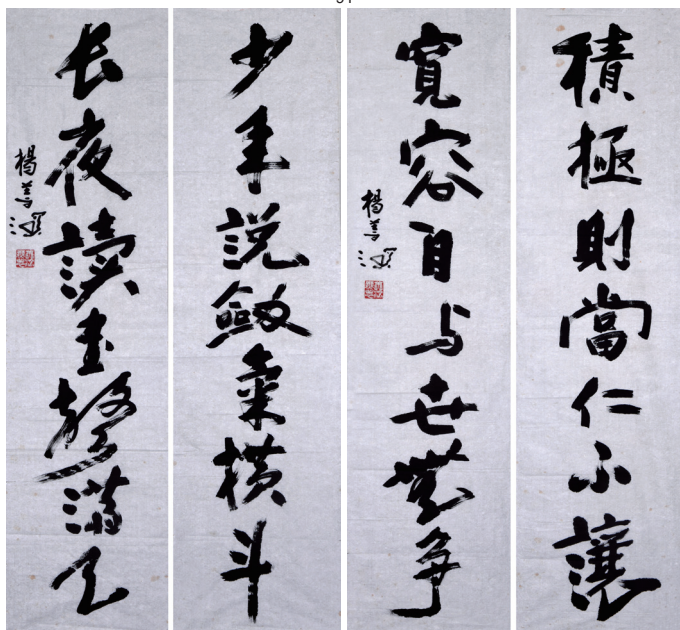 積極則當仁不讓
寬容自与世無爭
楊善深
少年說劍氣橫斗
長夜讀書聲滿天
楊善深